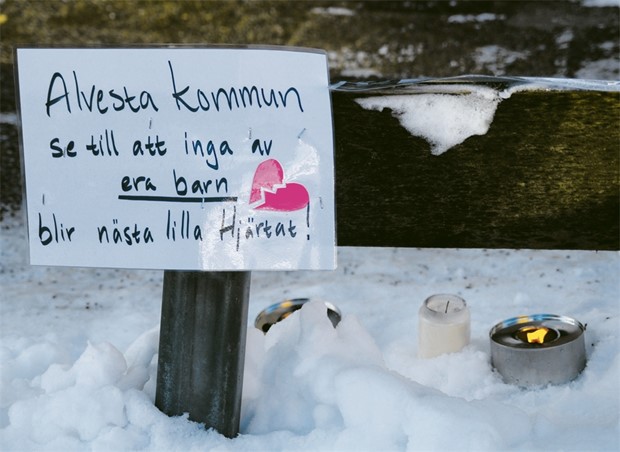 Alvesta kommun
se till att inga av
era barn
blir nästa lilla Hjärtat!